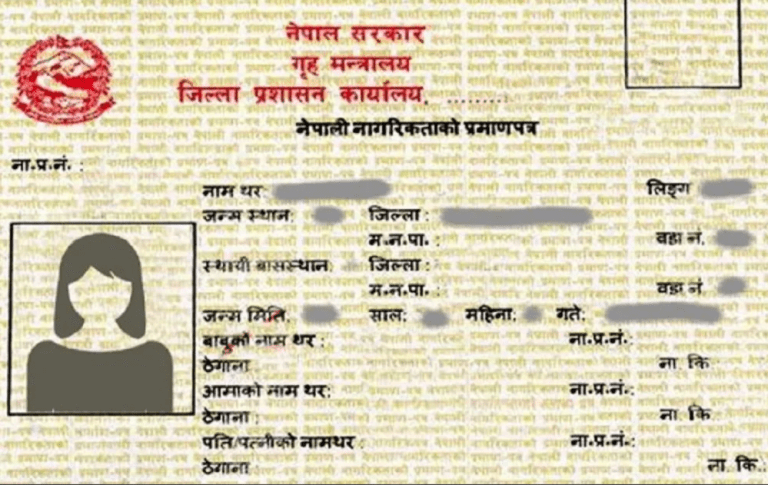 नेपाल सरकार
गृह मन्त्रालय
जिल्ला प्रशासन कार्यालय, .........
नेपाली नागरिकताको प्रमाणपत्र
ना.प्र.नं. :
नाम थर: लिङ्ग
जन्म स्थान: जिल्ला :
म.न.पा. : वडा नं.
स्थायी बासस्थान: जिल्ला :
म.न.पा. : वडा नं.
जन्म मिति: साल: महिना: गते:
बाबुको नाम थर : ना.प्र.नं.:
ठेगाना: ना. कि.
आमाको नाम थर: ना.प्र.नं.:
ठेगाना : ना. कि.
पति/पत्नीको नामथर: ना.प्र.नं.:
ठेगाना : ना. कि.: